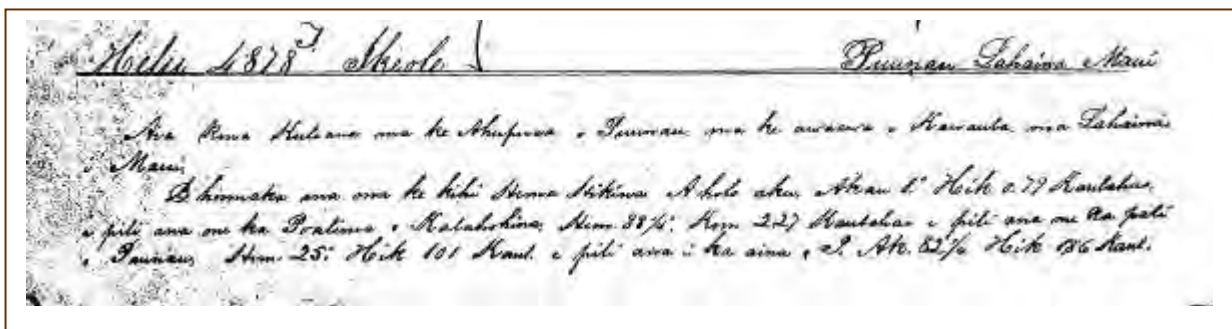 Helu 4878 J Ikeole Puunau Lahaina Maui
Ava Kuleana ma ke Ahupuaa o Puunau ma ke awawa o Kauaula ma Lahaina
Maui
E hoomaka ana ma ke kihi Hema Hikina A holo aku Akau 1° Hik 0.79 Kaulahao
e pili ana me ka Poalima o Kalahokina, Hem. 88½° Kom 2.27 Kaulahao e pili ana me ka pali
o Puunau, Hem. 25° Hik 101 Kaul. e pili ana i ka aina o I. Ak. 82½ Hik 186 Kaul.